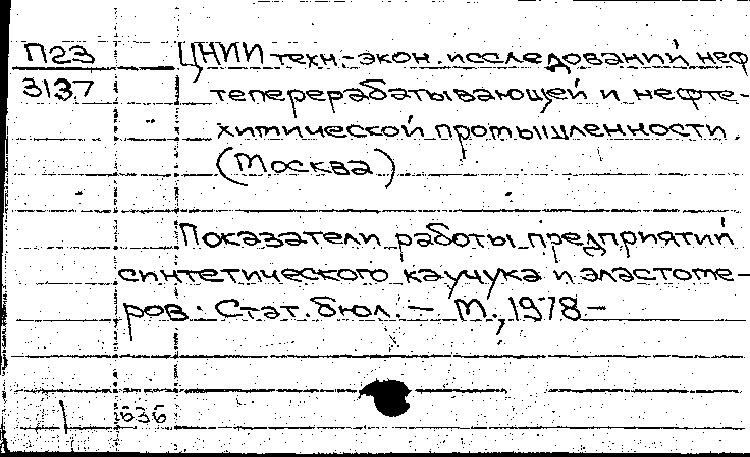 П23 ЦНИИ техн.-экон. исследований неф
3137 теперерабатывающей и нефте-
химической промышленности.
(Москва)
Показатели работы предприятий
синтетического каучука и эластоме-
ров. Стат. бюл. — М., 1978 —
636